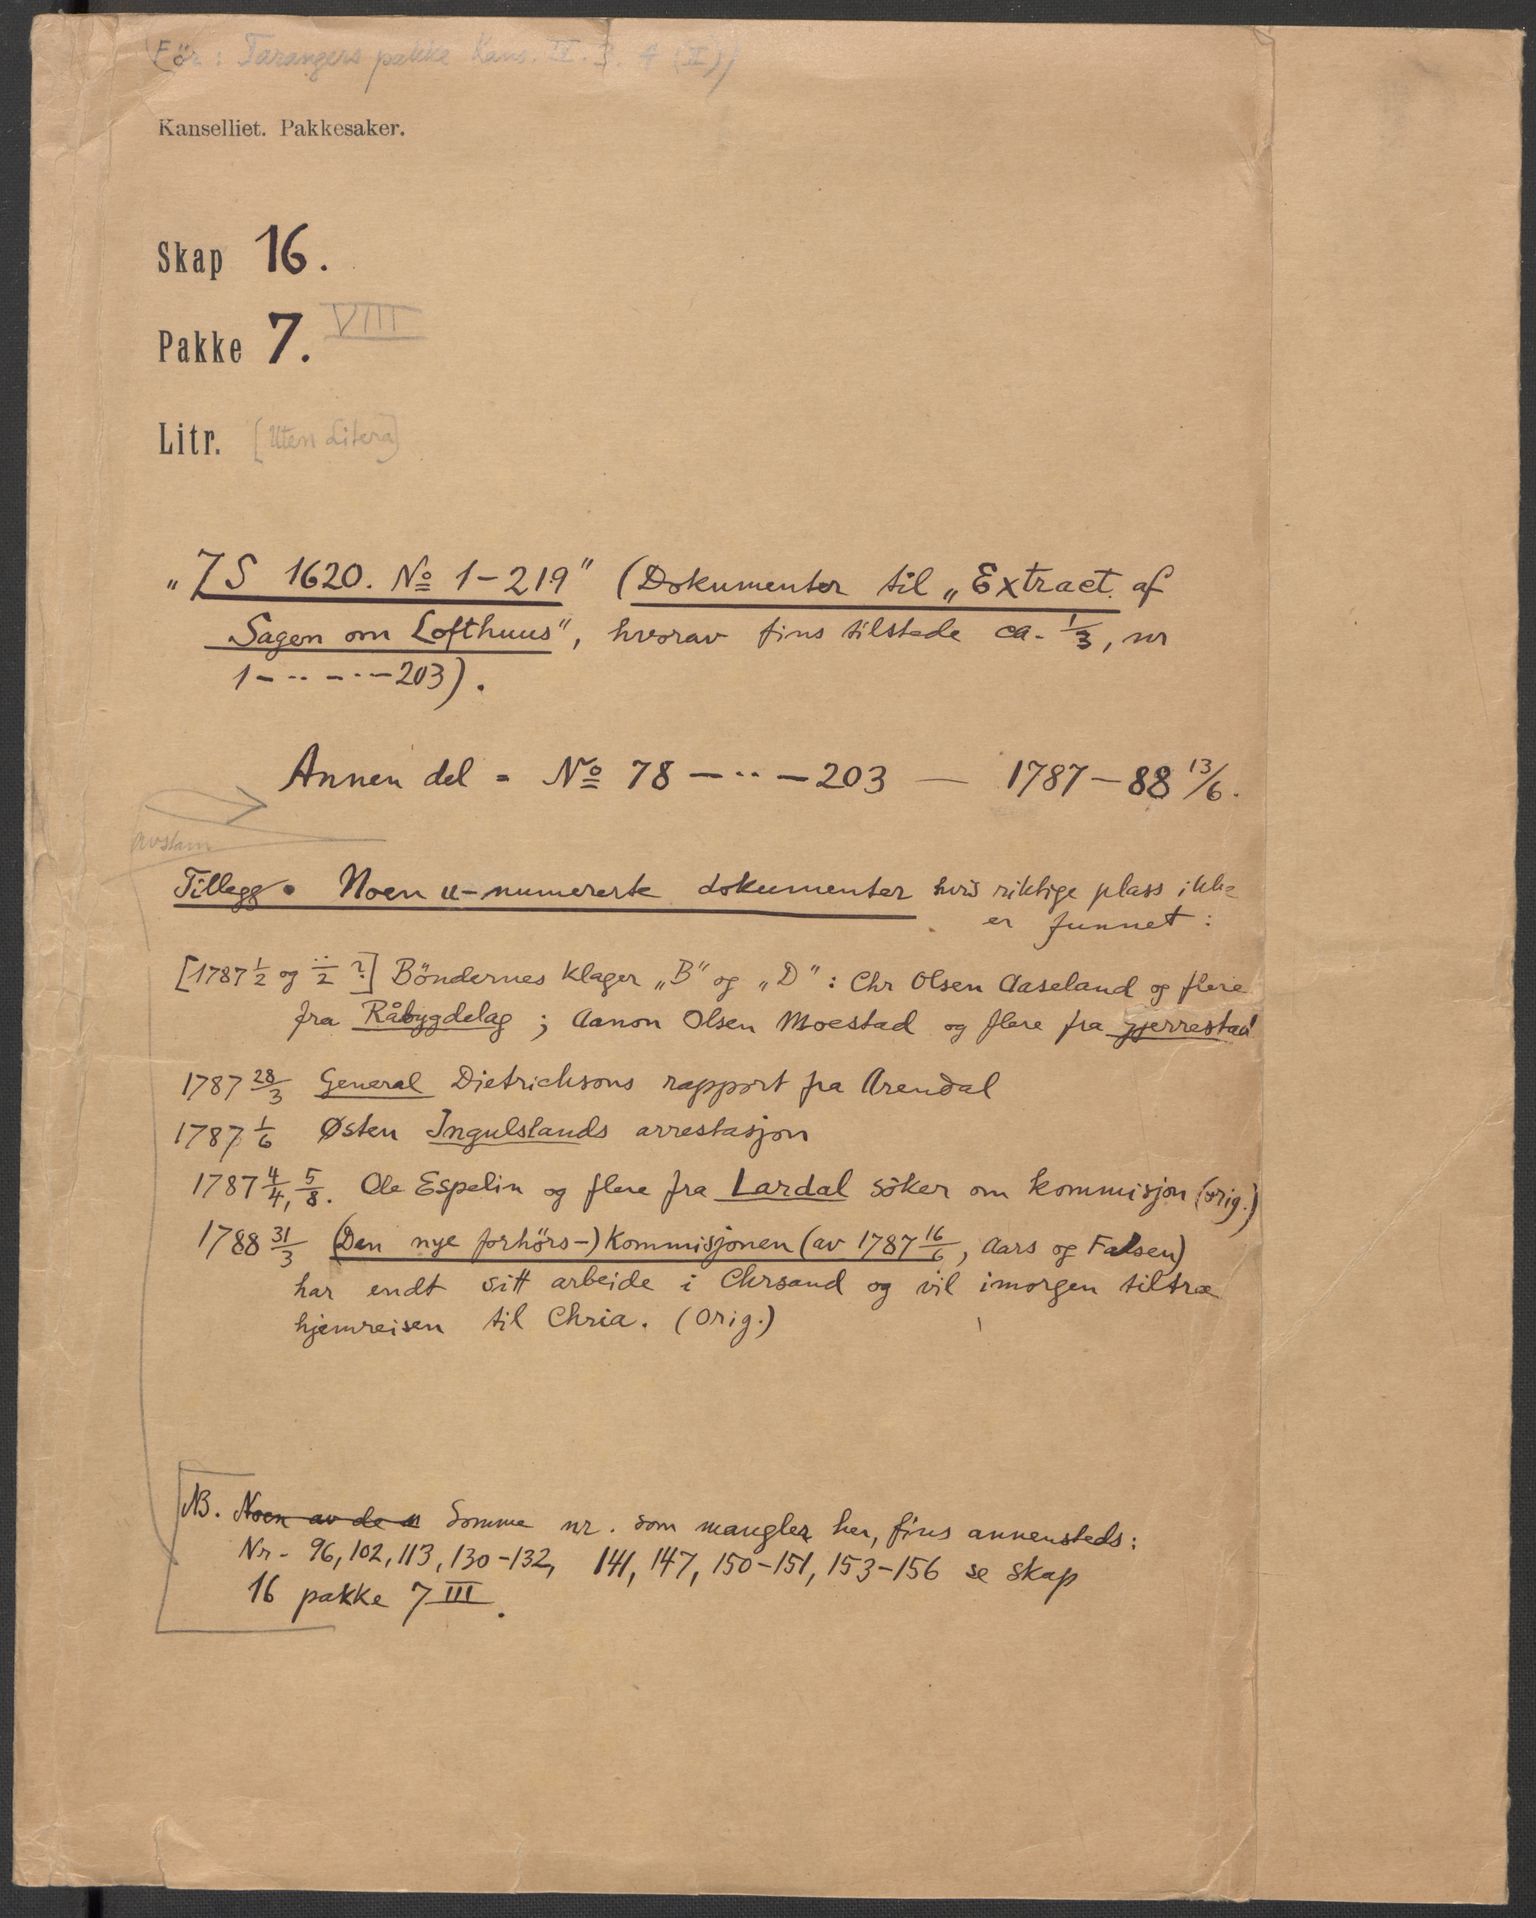 (Før: Tarangers pakke Kans. IX. 3. A (II))
Kanselliet. Pakkesaker.
Skap 16.
Pakke 7. VIII
Litr. [Uten Litera]
„ZS 1620. No 1-219" (Dokumenter til „Extract af
Sagen om Lofthuus", hvorav fins tilstede ca. 1/3, nr
1-··-·-203).
Annen del = No 78 -··- 203 — 1787-88 13/6.
avskm
Tillegg. Noen u-numererte dokumenter hvis riktige plass ikke
er funnet:
[1787 1/2 og ··/2 ?] Böndernes klager „B" og „D": Chr Olsen Aaseland og flere
fra Råbygdelag; Aanon Olsen Moestad og flere fra Gjerrestad
1787 28/3 General Dietrichsons rapport fra Arendal
1787 1/6 Østen Ingulstands arrestasjon
1787 4/4, 5/8. Ole Espelin og flere fra Lardal söker om kommisjon (orig.)
1788 31/3 (Den nye forhørs-) Kommisjonen (av 1787 16/6, Aars og Falsen)
har endt sitt arbeide i Chrsand og vil imorgen tiltræ
hjemreisen til Chria. (Orig.)
NB. Noen av de u Somme nr. som mangler her, fins annensteds:
Nr. 96, 102, 113, 130-132, 141, 147, 150-151, 153-156 se skap
16 pakke 7 III.